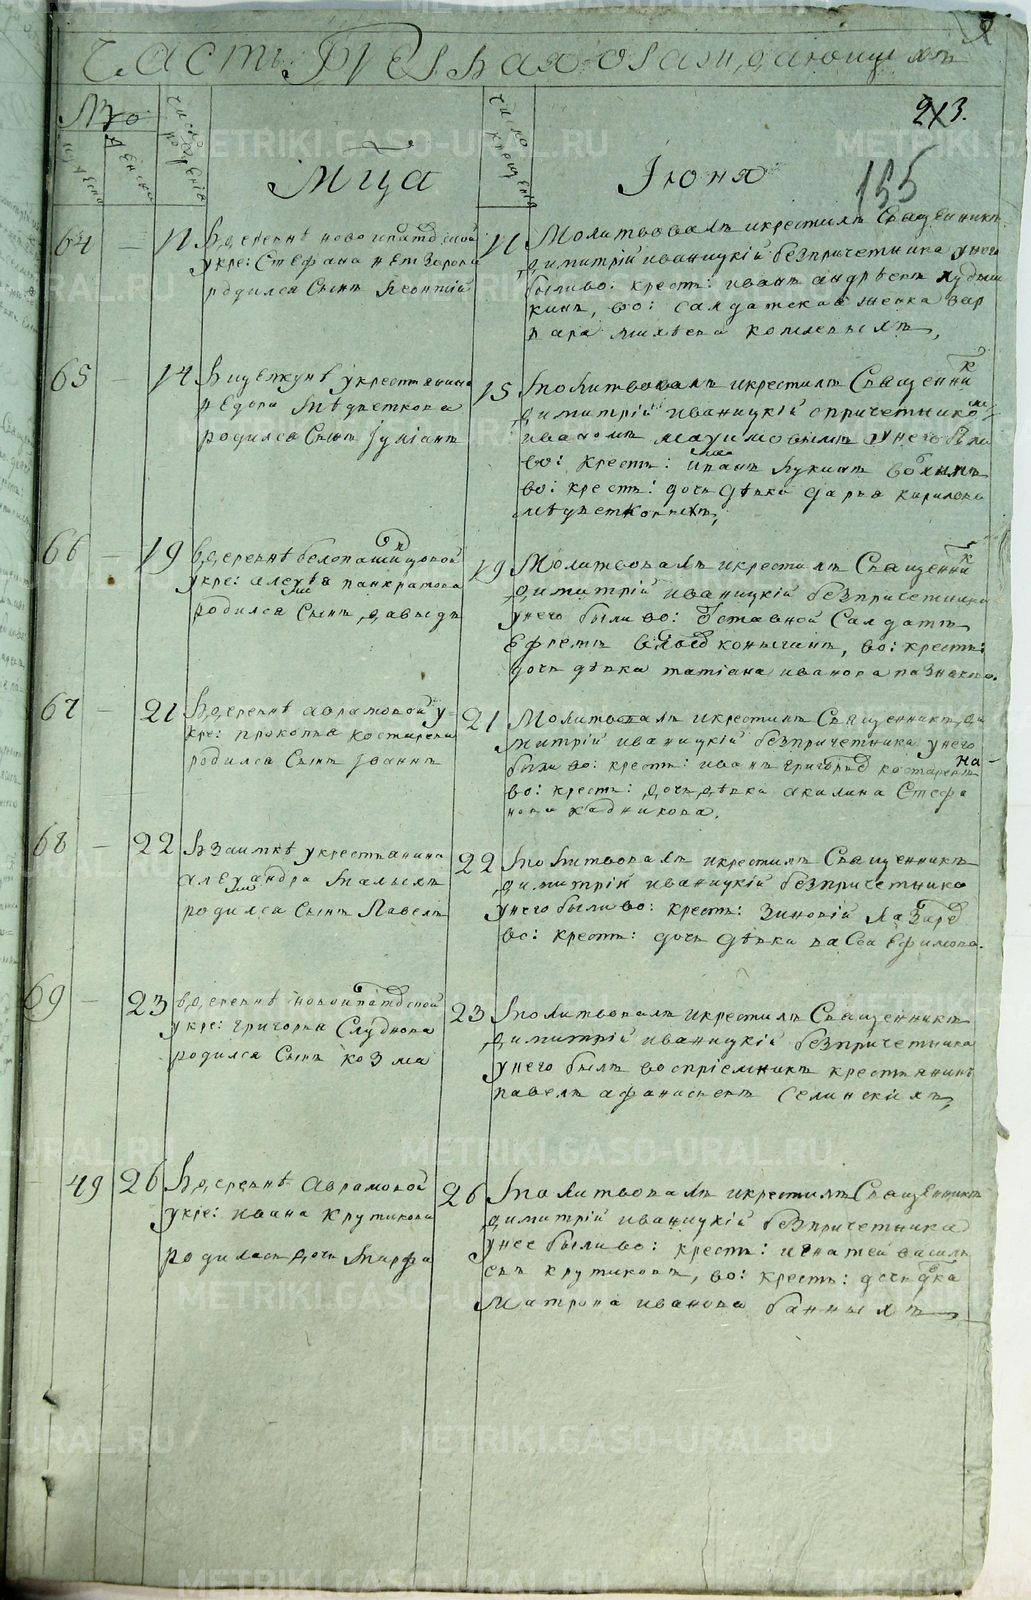 Часть Первая о раждающихся
№ го
мужеска
женска
число рожденія
число крещенія
213.
155
Мца
Іюня
64 — 11 Въ деревнѣ новоипатовской
у кре: Стефана
родился Сынъ Леонтій
11 Молитвовалъ и крестилъ Священникъ
Димитрій иваницкій безпричетника у него
были во: крест: иванъ андрѣевъ худыш
кинъ, во: салдатская женка вар
вара михѣева
65 — 14 В у крестьянина
родился Сынъ Іуліанъ
15 молитвовалъ и крестилъ Священник
Димитрій иваницкій с причетником
иваномъ маѯимовымъ у него были
во: крест: иванъ лукинъ
во: крест: дочь дѣвка дарья карилова
66 — 19 в деревнѣ белопашинцовой
у кре: алеѯѣя панкратова
родился Сынъ давыдъ
19 Молитвовалъ и крестилъ Священник
Димитрій иваницкій безпричетника
у него были во: Отставной Салдатъ
Ефремъ коныгинъ, во: крест:
дочь дѣвка татіана иванова
67 — 21 В деревнѣ аврамовой у
кре: прокопья костарева
родился Сынъ Іоаннъ
21 Молитвовалъ и крестилъ Священникъ ди
митрій иваницкій безпричетника у него
были во: крест: иванъ григорьев костаревъ на
во: крест: дочь дѣвка акилина Стефа
нова кадникова.
68 — 22 В заимкѣ у крестьянина
алеѯандра малыхъ
родился Сынъ Павелъ
22 молитвовалъ и крестилъ Священникъ
Димитрій иваницкій безпричетника
у него были во: крест: Зиновій Лазарев
во: крест: дочь дѣвка васса ефимова.
69 — 23 в деревнѣ новоипатовской
у кре: григорья Слуднова
родился Сынъ козма
23 молитвовалъ и крестилъ Священникъ
Димитрій иваницкій безпричетника
у него былъ воспріемникъ крестьянинъ
павелъ афанасьевъ Селинскихъ,
49 26 В деревнѣ Аврамовой
у кре: ивана крутикова
родилась дочь марфа
26 молитвовалъ и крестилъ Священникъ
Димитрій иваницкій безпричетника
у нее были во: крест: игнатей василь
евъ крутиковъ, во: крест: дочь дѣвка
Матрона иванова банныхъ
METRIKI.GASO-URAL.RU